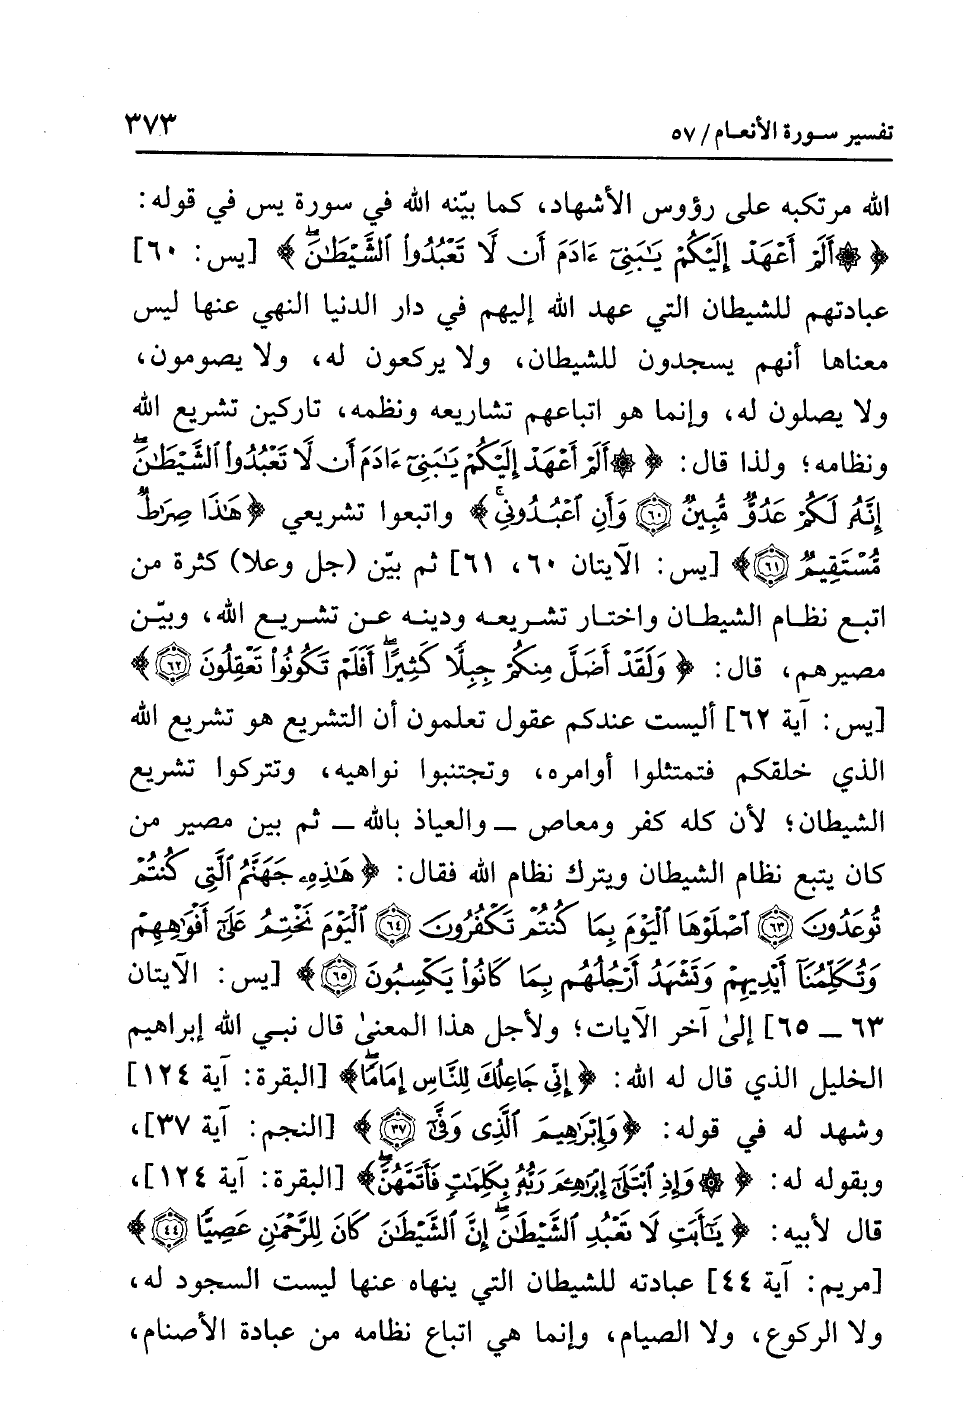 تفسير سورة الأنعام/ ٥٧ ٣٧٣
الله مرتكبه على رؤوس الأشهاد، كما بيّنه الله في سورة يس في قوله:
﴿ ۞ أَلَمْ أَعْهَدْ إِلَيْكُمْ يَٰبَنِىٓ ءَادَمَ أَن لَّا تَعْبُدُوا۟ ٱلشَّيْطَٰنَ ۖ ﴾ [يس: ٦٠]
عبادتهم للشيطان التي عهد الله إليهم في دار الدنيا النهي عنها ليس
معناها أنهم يسجدون للشيطان، ولا يركعون له، ولا يصومون،
ولا يصلون له، وإنما هو اتباعهم تشاريعه ونظمه، تاركين تشريع الله
ونظامه؛ ولذا قال: ﴿ ۞ أَلَمْ أَعْهَدْ إِلَيْكُمْ يَٰبَنِىٓ ءَادَمَ أَن لَّا تَعْبُدُوا۟ ٱلشَّيْطَٰنَ ۖ
إِنَّهُۥ لَكُمْ عَدُوٌّ مُّبِينٌ ﴿٦٠﴾ وَأَنِ ٱعْبُدُونِى ۚ ﴾ واتبعوا تشريعي ﴿ هَٰذَا صِرَٰطٌ
مُّسْتَقِيمٌ ﴿٦١﴾ ﴾ [يس: الآيتان ٦٠، ٦١] ثم بيّن (جل وعلا) كثرة من
اتبع نظام الشيطان واختار تشريعه ودينه عن تشريع الله، وبيّن
مصيرهم، قال: ﴿ وَلَقَدْ أَضَلَّ مِنكُمْ جِبِلًّا كَثِيرًا ۖ أَفَلَمْ تَكُونُوا۟ تَعْقِلُونَ ﴿٦٢﴾ ﴾
[يس: آية ٦٢] أليست عندكم عقول تعلمون أن التشريع هو تشريع الله
الذي خلقكم فتمتثلوا أوامره، وتجتنبوا نواهيه، وتتركوا تشريع
الشيطان؛ لأن كله كفر ومعاص ــ والعياذ بالله ــ ثم بين مصير من
كان يتبع نظام الشيطان ويترك نظام الله فقال: ﴿ هَٰذِهِۦ جَهَنَّمُ ٱلَّتِى كُنتُمْ
تُوعَدُونَ ﴿٦٣﴾ ٱصْلَوْهَا ٱلْيَوْمَ بِمَا كُنتُمْ تَكْفُرُونَ ﴿٦٤﴾ ٱلْيَوْمَ نَخْتِمُ عَلَىٰٓ أَفْوَٰهِهِمْ
وَتُكَلِّمُنَآ أَيْدِيهِمْ وَتَشْهَدُ أَرْجُلُهُم بِمَا كَانُوا۟ يَكْسِبُونَ ﴿٦٥﴾ ﴾ [يس: الآيتان
٦٣ ــ ٦٥] إلىٰ آخر الآيات؛ ولأجل هذا المعنىٰ قال نبي الله إبراهيم
الخليل الذي قال له الله: ﴿ إِنِّى جَاعِلُكَ لِلنَّاسِ إِمَامًا ۖ ﴾ [البقرة: آية ١٢٤]
وشهد له في قوله: ﴿ وَإِبْرَٰهِيمَ ٱلَّذِى وَفَّىٰٓ ﴿٣٧﴾ ﴾ [النجم: آية ٣٧]،
وبقوله له: ﴿ ۞ وَإِذِ ٱبْتَلَىٰٓ إِبْرَٰهِۦمَ رَبُّهُۥ بِكَلِمَٰتٍ فَأَتَمَّهُنَّ ۖ ﴾ [البقرة: آية ١٢٤]،
قال لأبيه: ﴿ يَٰٓأَبَتِ لَا تَعْبُدِ ٱلشَّيْطَٰنَ ۖ إِنَّ ٱلشَّيْطَٰنَ كَانَ لِلرَّحْمَٰنِ عَصِيًّا ﴿٤٤﴾ ﴾
[مريم: آية ٤٤] عبادته للشيطان التي ينهاه عنها ليست السجود له،
ولا الركوع، ولا الصيام، وإنما هي اتباع نظامه من عبادة الأصنام،